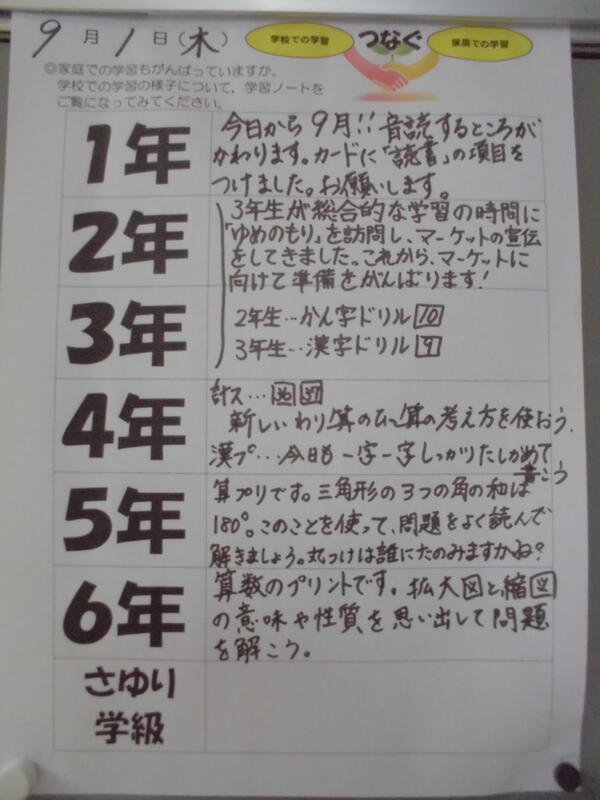 9月1日(木)
学校での学習
つなぐ
家庭での学習
◎家庭での学習もがんばっていますか。
学校での学習の様子について、学習ノートを
ご覧になってみてください。
1年
今日から9月!!音読するところが
かわります。カードに「読書」の項目を
つけました。お願いします。
2年
3年生が総合的な学習の時間に
「ゆめのもり」を訪問し、マーケットの宣伝
をしてきました。これから、マーケットに
向けて準備をがんばります!
3年
2年生…かん字ドリル10
3年生…漢字ドリル9
4年
計ス…36 37
新しいわり算のひっ算の考え方を使おう.
漢プ…今日も一字一字しっかりたしかめて
書こう
5年
算プリです。三角形の3つの角の和は
180°。このことを使って、問題をよく読んで
解きましょう。丸つけは誰にたのみますかね?
6年
算数のプリントです。拡大図と縮図
の意味や性質を思い出して問題
を解こう。
さゆり
学級